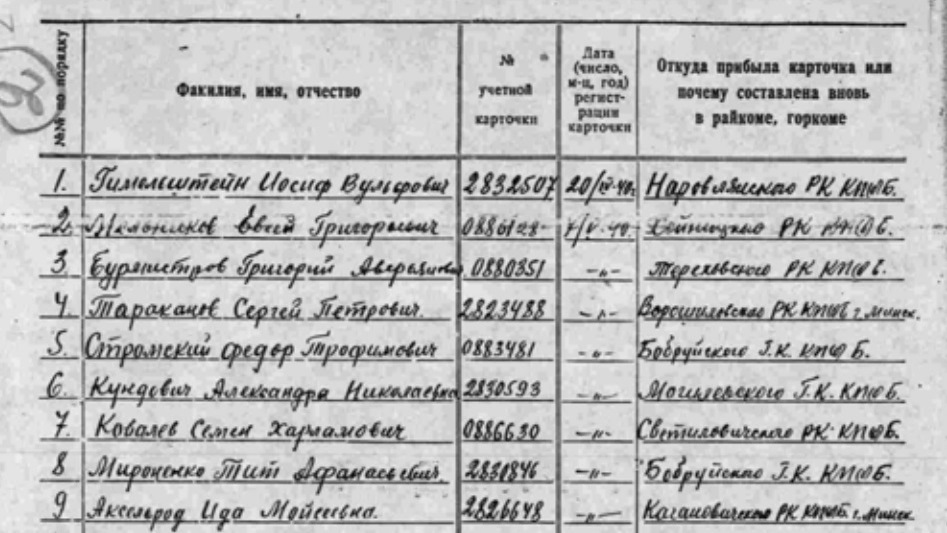 2
№№ по порядку
Факилия, имя, отчество
№ учетной карточки
Дата (число, м-ц, год) регистрации карточки
Откуда прибыла карточка или почему составлена вновь в райкоме, горкоме
1. Гимельштейн Иосиф Вульфович 2832507 20/IV-40. Наровлянского РК КП(б)Б.
2. Григорьевич 0886128 /V-40. РК КП(б)Б.
3. Григорий 0880351 -"- Тереховского РК КП(б)Б.
4. Тараканов Сергей Петрович. 2823488 -"- Ворошиловского РК КП(б)Б г. Минск.
5. Стромский Федор Трофимович 0883481 -"- Бобруйского Г.К. КП(б)Б.
6. Кундович Александра Николаевна 2830593 -"- Могилевского Г.К. КП(б)Б.
7. Ковалев Семен Харламович 0886630 -"- Светиловичского РК КП(б)Б.
8 Мироненко Тит Афанасьевич 2831846 -"- Бобруйского Г.К. КП(б)Б.
9 Аксельрод Ида Мойсеевна. 2826648 -"- Кагановичского РК КП(б)Б. г. Минск